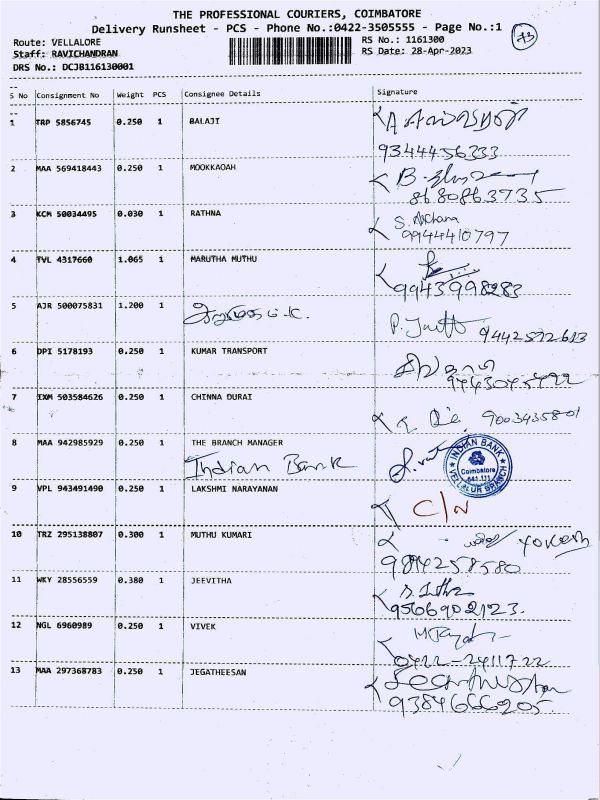 THE PROFESSIONAL COURIERS, COIMBATORE
Delivery Runsheet - PCS - Phone No.:0422-3505555 - Page No.:1
73
Route: VELLALORE
RS No.: 1161300
Staff: RAVICHANDRAN
RS Date: 28-Apr-2023
DRS No.: DCJB116130001
S No Consignment No Weight PCS Consignee Details Signature
1 TRP 5856745 0.250 1 BALAJI
9344456333
2 MAA 569418443 0.250 1 MOOKKAOAH
8680863735
3 KCM 50034495 0.030 1 RATHNA
9944410797
4 TVL 4317660 1.065 1 MARUTHA MUTHU
9943998283
5 AJR 500075831 1.200 1
9442572613
6 DPI 5178193 0.250 1 KUMAR TRANSPORT
7 IXM 503584626 0.250 1 CHINNA DURAI
9003435801
8 MAA 942985929 0.250 1 THE BRANCH MANAGER
Indian Bank
INDIAN BANK
Coimbatore
641 111
VELLALUR BRANCH
9 VPL 943491490 0.250 1 LAKSHMI NARAYANAN
C/N
10 TRZ 295138807 0.300 1 MUTHU KUMARI
Yokesh
984258580
11 WKY 28556559 0.380 1 JEEVITHA
9566902123.
12 NGL 6960989 0.250 1 VIVEK
0422-2411722
13 MAA 297368783 0.250 1 JEGATHEESAN
9384666205